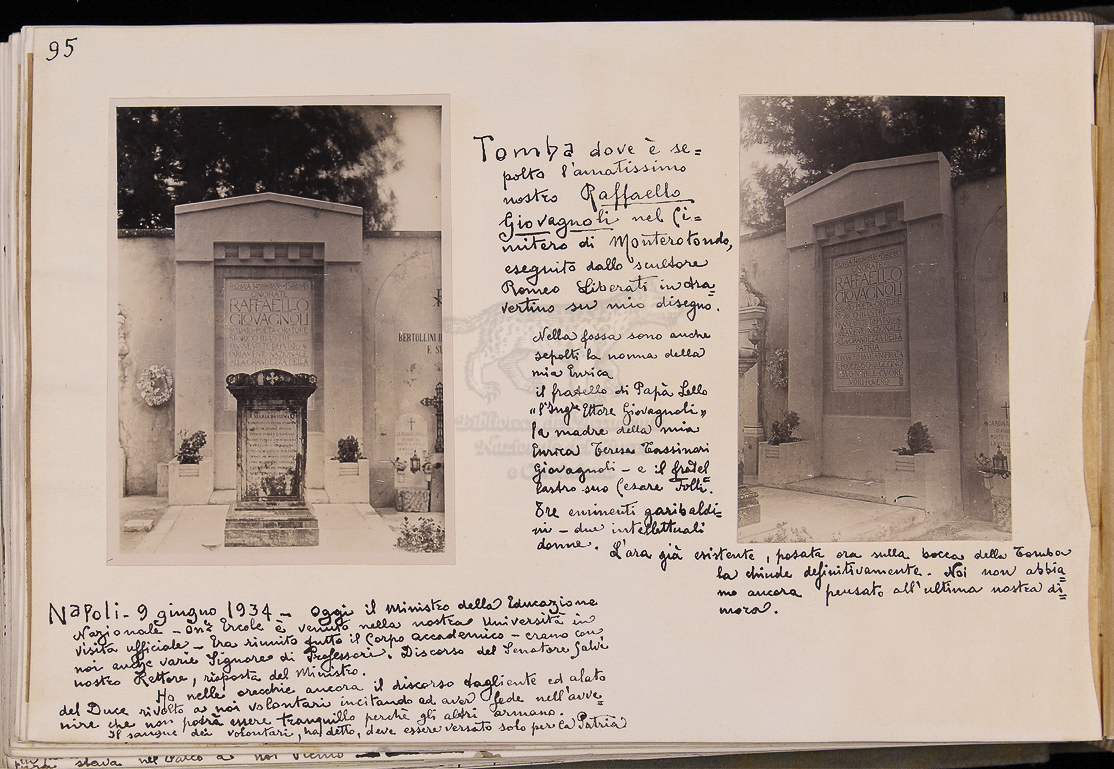 95
Tomba dove è se=
polto l'amatissimo
nostro Raffaello
Giovagnoli nel Ci=
mitero di Monterotondo,
eseguito dallo scultore
Romeo Liberati in tra=
vertino su mio disegno.
Nella fossa sono anche
sepolti la nonna della
mia Enrica
il fratello di Papà Lello
"l'Ingre Ettore Giovagnoli"
la madre della mia
Enrica Teresa Tassinari
Giovagnoli - e il fratel
lastro suo Cesare
Tre eminenti garibaldi=
ni - due intellettuali
donne. L'ara già esistente, posata ora sulla bocca della Tomba
la chiude definitivamente. Noi non abbia=
mo ancora pensato all'ultima nostra di=
mora.
Napoli - 9 giugno 1934 - Oggi il Ministro della Educazione
Nazionale - On.e Ercole è venuto nella nostra Università in
visita ufficiale - Era riunito tutto il Corpo accademico - erano con
noi anche varie Signore di Professori. Discorso del Senatore Salvi
nostro Rettore, risposta del Ministro.
Ho nelle orecchie ancora il discorso tagliente ed alato
del Duce rivolto a noi volontari incitando ad aver fede nell'avve=
nire che non potrà essere tranquillo perché gli altri armano.
Il sangue dei volontari, ha detto, deve essere versato solo per la Patria
RAFFAELLO
GIOVAGNOLI
BERTOLLINI
E SU
RAFFAELLO
GIOVAGNOLI
PATRIA
CUORE
MORI POVERO
Biblioteca
Nazionale
stava nel Parco a noi vicino